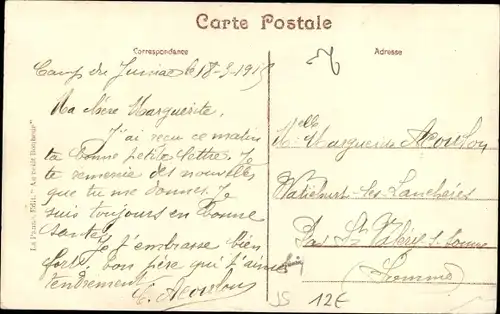 Carte Postale
Correspondance
Adresse
Camp du le 18-3-1915
Ma chère Marguerite,
J'ai reçu ce matin
ta bonne petite lettre. Je
te remercie des nouvelles
que tu me donnes. Je
suis toujours en bonne
santé.
Je t'embrasse bien
fort. ton père qui t'aime
tendrement
Melle Marguerite
les Lanchères
Par St Valéry s. Somme
(Somme)
JS 12E
La Panne Edit. "Au petit Bonheur"